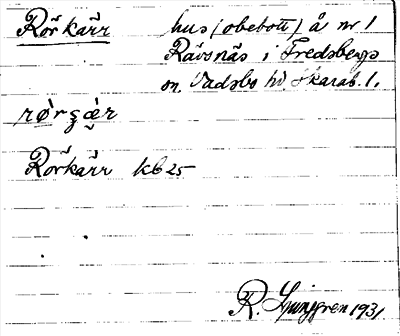 Rörkärr hus (obebott) å nr 1
Rävsnäs i Fredsbergs
sn. Vadsbo hd Skarab. l.
rø̀rʂæ̀r
Rörkärr kb 25
R. Ljunggren 1931